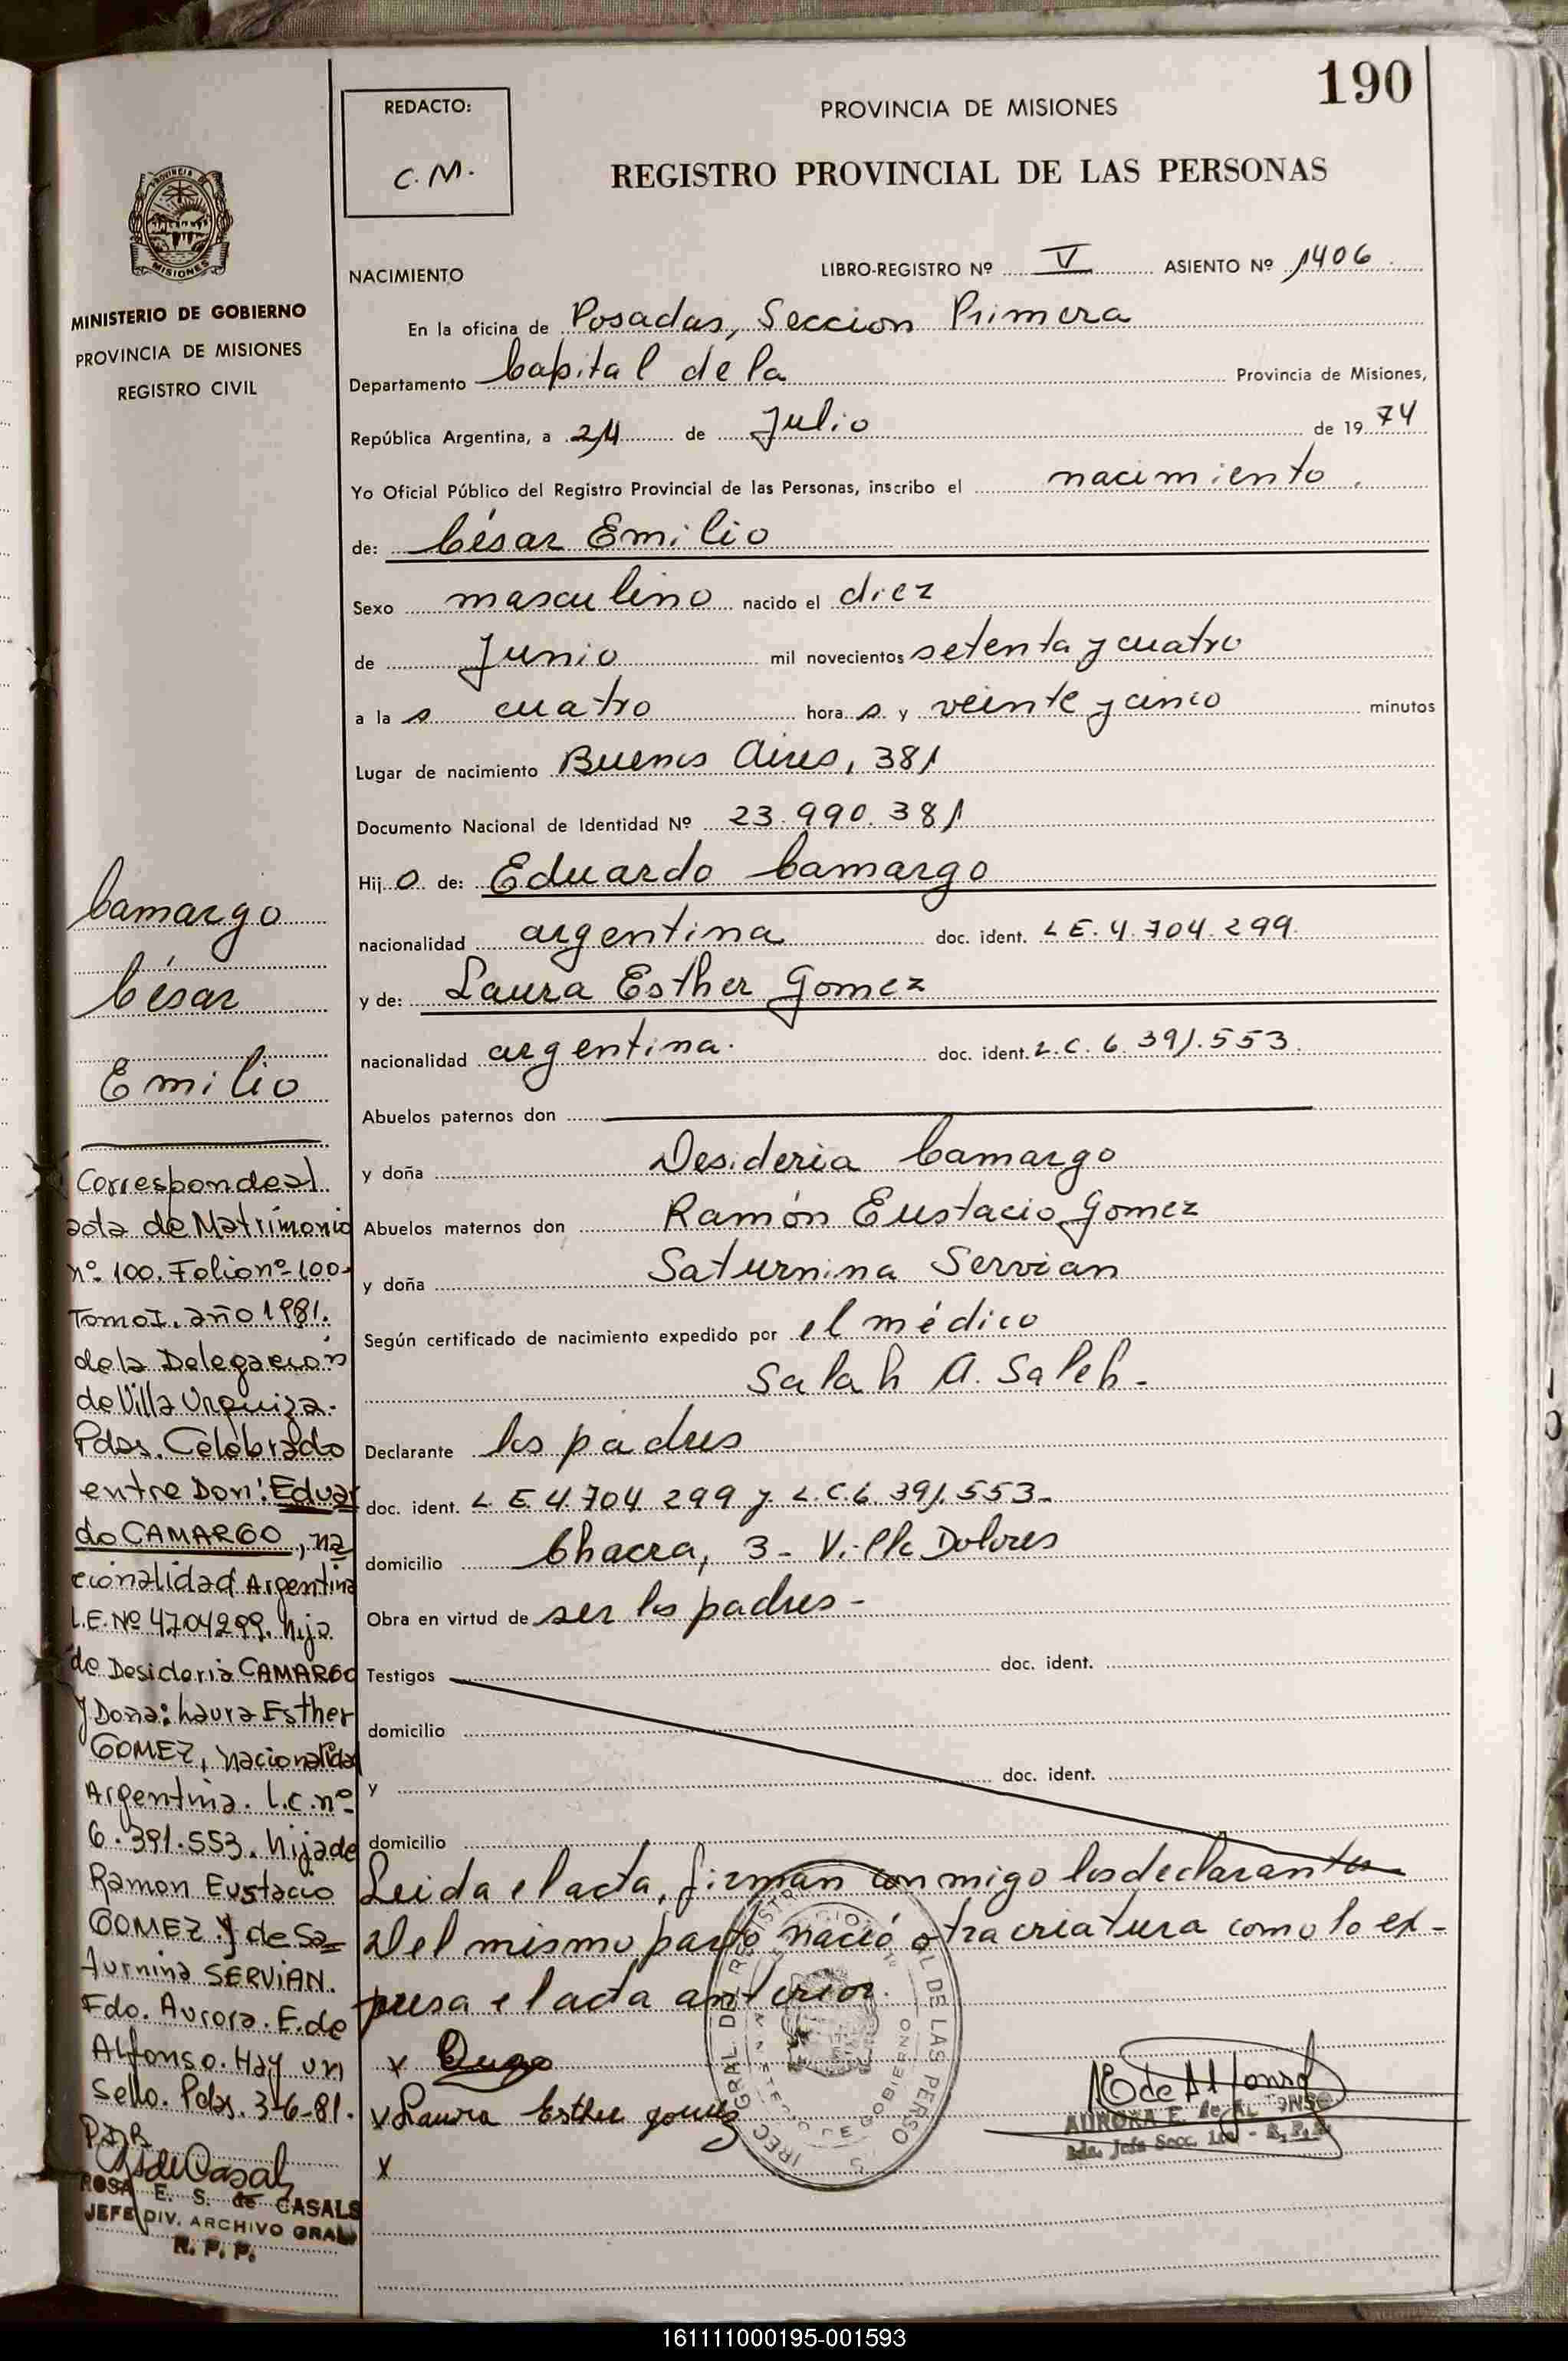 190
REDACTO:
C. M.
PROVINCIA DE MISIONES
REGISTRO PROVINCIAL DE LAS PERSONAS
MISIONES
MINISTERIO DE GOBIERNO
PROVINCIA DE MISIONES
REGISTRO CIVIL
NACIMIENTO
LIBRO-REGISTRO Nº V ASIENTO Nº 1406
En la oficina de Posadas, Seccion Primera
Departamento Capital de la Provincia de Misiones,
República Argentina, a 24 de Julio de 1974
Yo Oficial Público del Registro Provincial de las Personas, inscribo el nacimiento
de: César Emilio
Sexo masculino nacido el diez
de Junio mil novecientos setenta y cuatro
a las cuatro horas y veinte y cinco minutos
Lugar de nacimiento Buenos Aires, 381
Documento Nacional de Identidad Nº 23.990.381
Hijo de: Eduardo Camargo
nacionalidad argentina doc. ident. L E. 4.704.299
y de: Laura Esther Gomez
nacionalidad argentina. doc. ident. L.C. 6.391.553.
Abuelos paternos don
y doña Desideria Camargo
Abuelos maternos don Ramón Eustacio Gomez
y doña Saturnina Servian
Según certificado de nacimiento expedido por el médico
Salah A. Saleh-
Declarante los padres
doc. ident. L. E. 4.704.299 y L.C. 6.391.553-
domicilio Chacra, 3- Villa Dolores
Obra en virtud de ser los padres-
Testigos doc. ident.
domicilio
y doc. ident.
domicilio
Leida el acta, firman conmigo los declarantes
Del mismo parto nació otra criatura como lo ex-
presa el acta anterior.
x
x Laura Esther gomez
x
E de Alfonso
AURORA E. de ALFONSO
Camargo
César
Emilio
Corresponde al
acta de Matrimonio
nº 100. Folio nº 100-
Tomo I. año 1981.
de la Delegación
de Villa Urquiza.
Pdas. Celebrado
entre Don: Eduar
do CAMARGO, na
cionalidad Argentina
L.E. Nº 4.704299. hijo
de Desideria CAMARGO
y Doña: Laura Esther
GOMEZ, nacionalidad
Argentina. L.C. nº
6.391.553. hija de
Ramon Eustacio
GOMEZ y de Sa=
turnina SERVIAN.
Fdo. Aurora. E. de
Alfonso. Hay un
sello. Pdas. 3-6-81.
ROSA E. S. de CASALS
JEFE DIV. ARCHIVO GRAL
R. P. P.
161111000195-001593